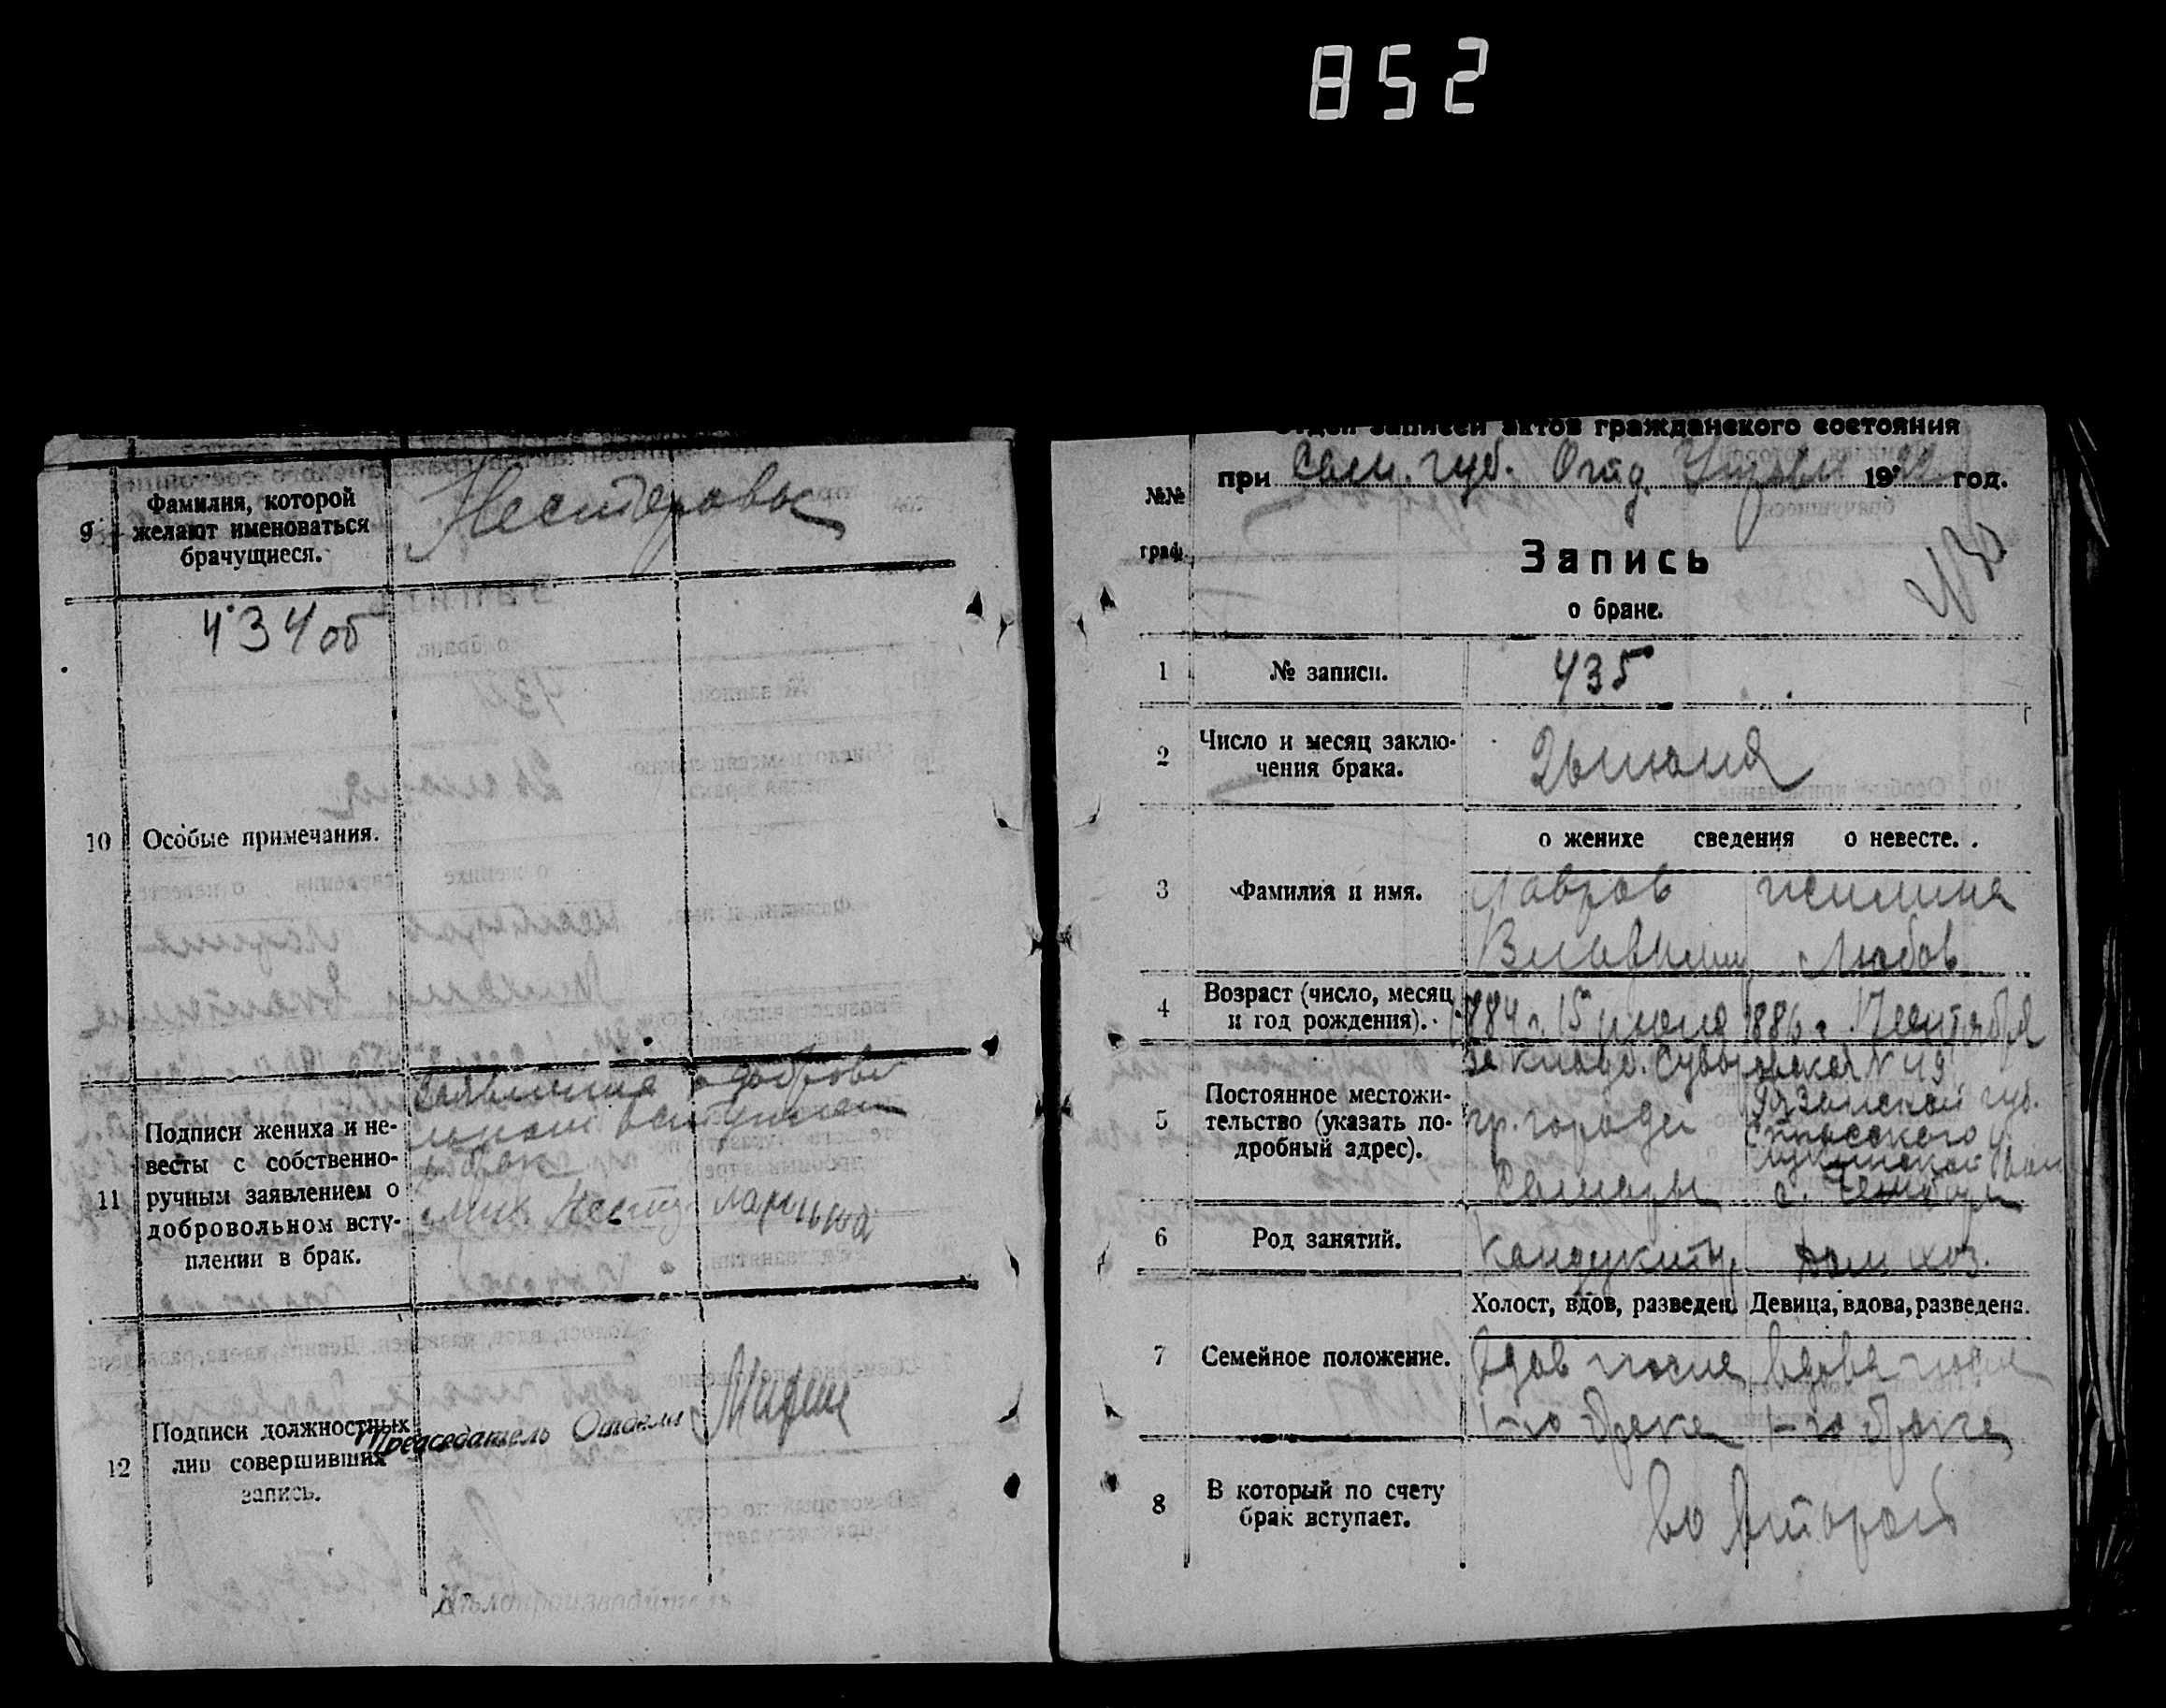 852
9
Фамилия, которой
желают именоваться
брачущиеся.
Нестеровы
434 об
10
Особые примечания.
11
Подписи жениха и не-
весты с собственно-
ручным заявлением о
добровольном всту-
плении в брак.
Заявление о доброво
льном вступлен
в брак
Мих. Несте
12
Подписи должностных
лиц совершивших
запись.
Председатель Отдела
Делопроизводитель
Отдел записей актов гражданского состояния
при Сам. губ. Отд. Управл 19 год.
№№
граф.
Запись
о браке.
1
№ записи.
435
2
Число и месяц заклю-
чения брака.
26 июня
о женихе сведения о невесте.
3
Фамилия и имя.
Лавров
Любов
4
Возраст (число, месяц
и год рождения).
1884 г. 15 июня 1886 г. 17 сентября
5
Постоянное местожи-
тельство (указать по-
дробный адрес).
Суворовская № 49
гр. города
Самары
Рязанской губ.
Спасского у.
с.
6
Род занятий.
Кондукт. Дом. хоз.
Холост, вдов, разведен. Девица, вдова, разведена.
7
Семейное положение.
Вдов после Вдова после
1-го брака 1-го брака
8
В который по счету
брак вступает.
во второй